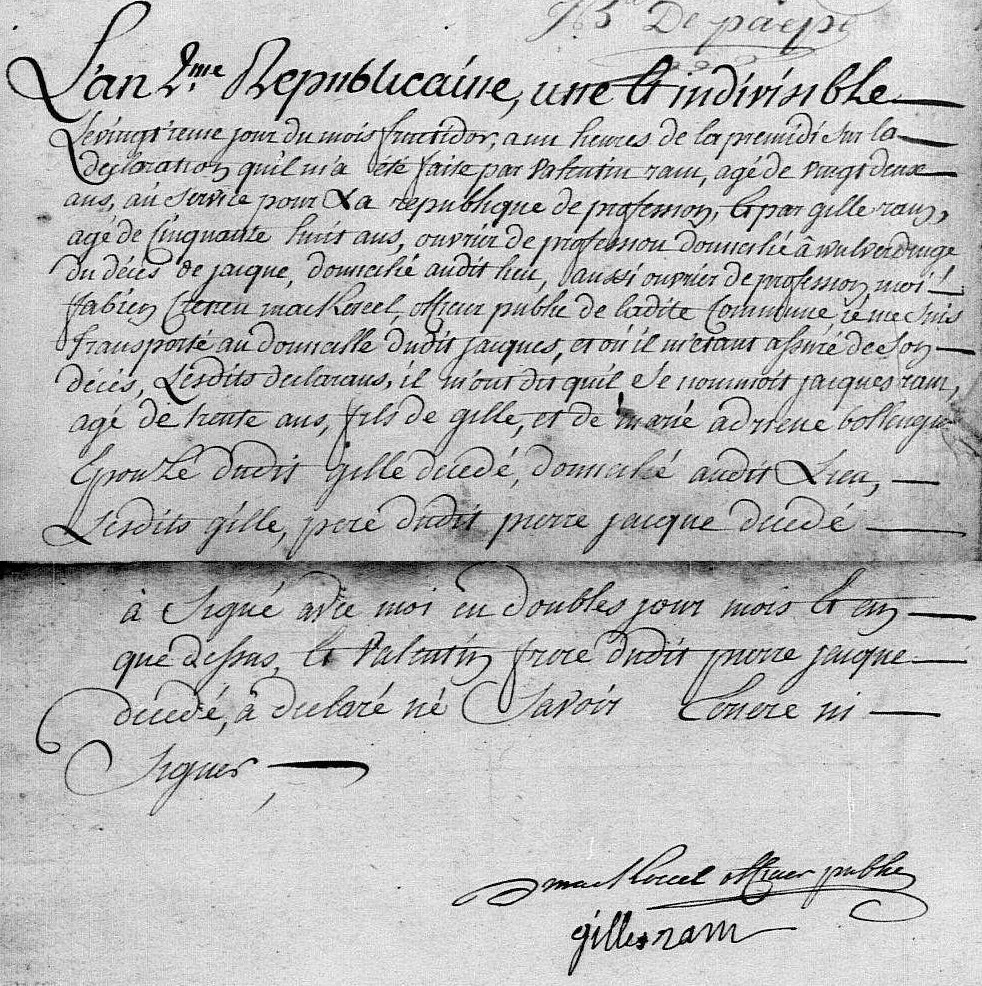 De paepe
L'an 2.me Republicaine, une et indivisible
Le vingtieme jour du mois fructidor, a un heures de la premidi sur la
declaration qu'il m'a été faite par Valentin ram, agé de vingt deux
ans, au service pour La republique de profession, et par gille ram,
agé de Cinquante huit ans, ouvrier de profession domicilié à wulverdinge
du décés de jacque, domicilié audit lieu, aussi ouvrier de profession moi
fabien mackereel, officier publie de ladite Commune je me suis
Transporté au domicille dudit jacques, et où il m'etant assuré de son
décés, Lesdits declarans, il m'ont dit quil se nommoit jacques ram,
agé de trente ans, fils de gille, et de marie adriene
Epouse dudit gille decedé, domicilié audit Lieu,
Lesdits gille, pere dudit pierre jacque decedé
à Signé avec moi en doubles jour mois et an
que dessus, et Valentin frere dudit pierre jacque
decedé, à declaré né Savoir Ecrire ni
Signer
mackereel officier publie
gille ram